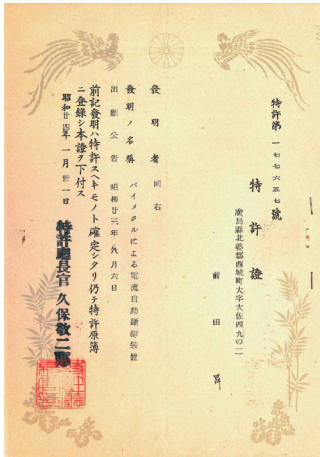 特許第一七七六五七號
特許證
廣島縣北婆郡西城町大字大佐四九の二
前田昇
發明者 同右
發明ノ名稱 バイメタルによる電流自動断續装置
出願公告 昭和廿三年 八月六日
前記發明ハ特許スヘキモノト確定シタリ仍テ特許原簿
ニ登錄シ本證ヲ下付ス
昭和廿四年一月廿一日
特許廳長官 久保敬二郎